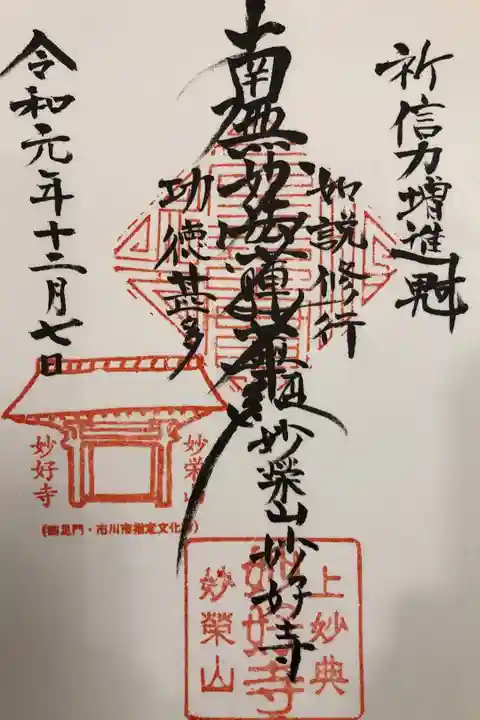 祈信力増進
如説修行
南無妙法蓮華経
功徳甚多
妙榮山妙好寺
令和元年十二月七日
妙栄山
妙好寺
上妙典
妙好寺
妙榮山